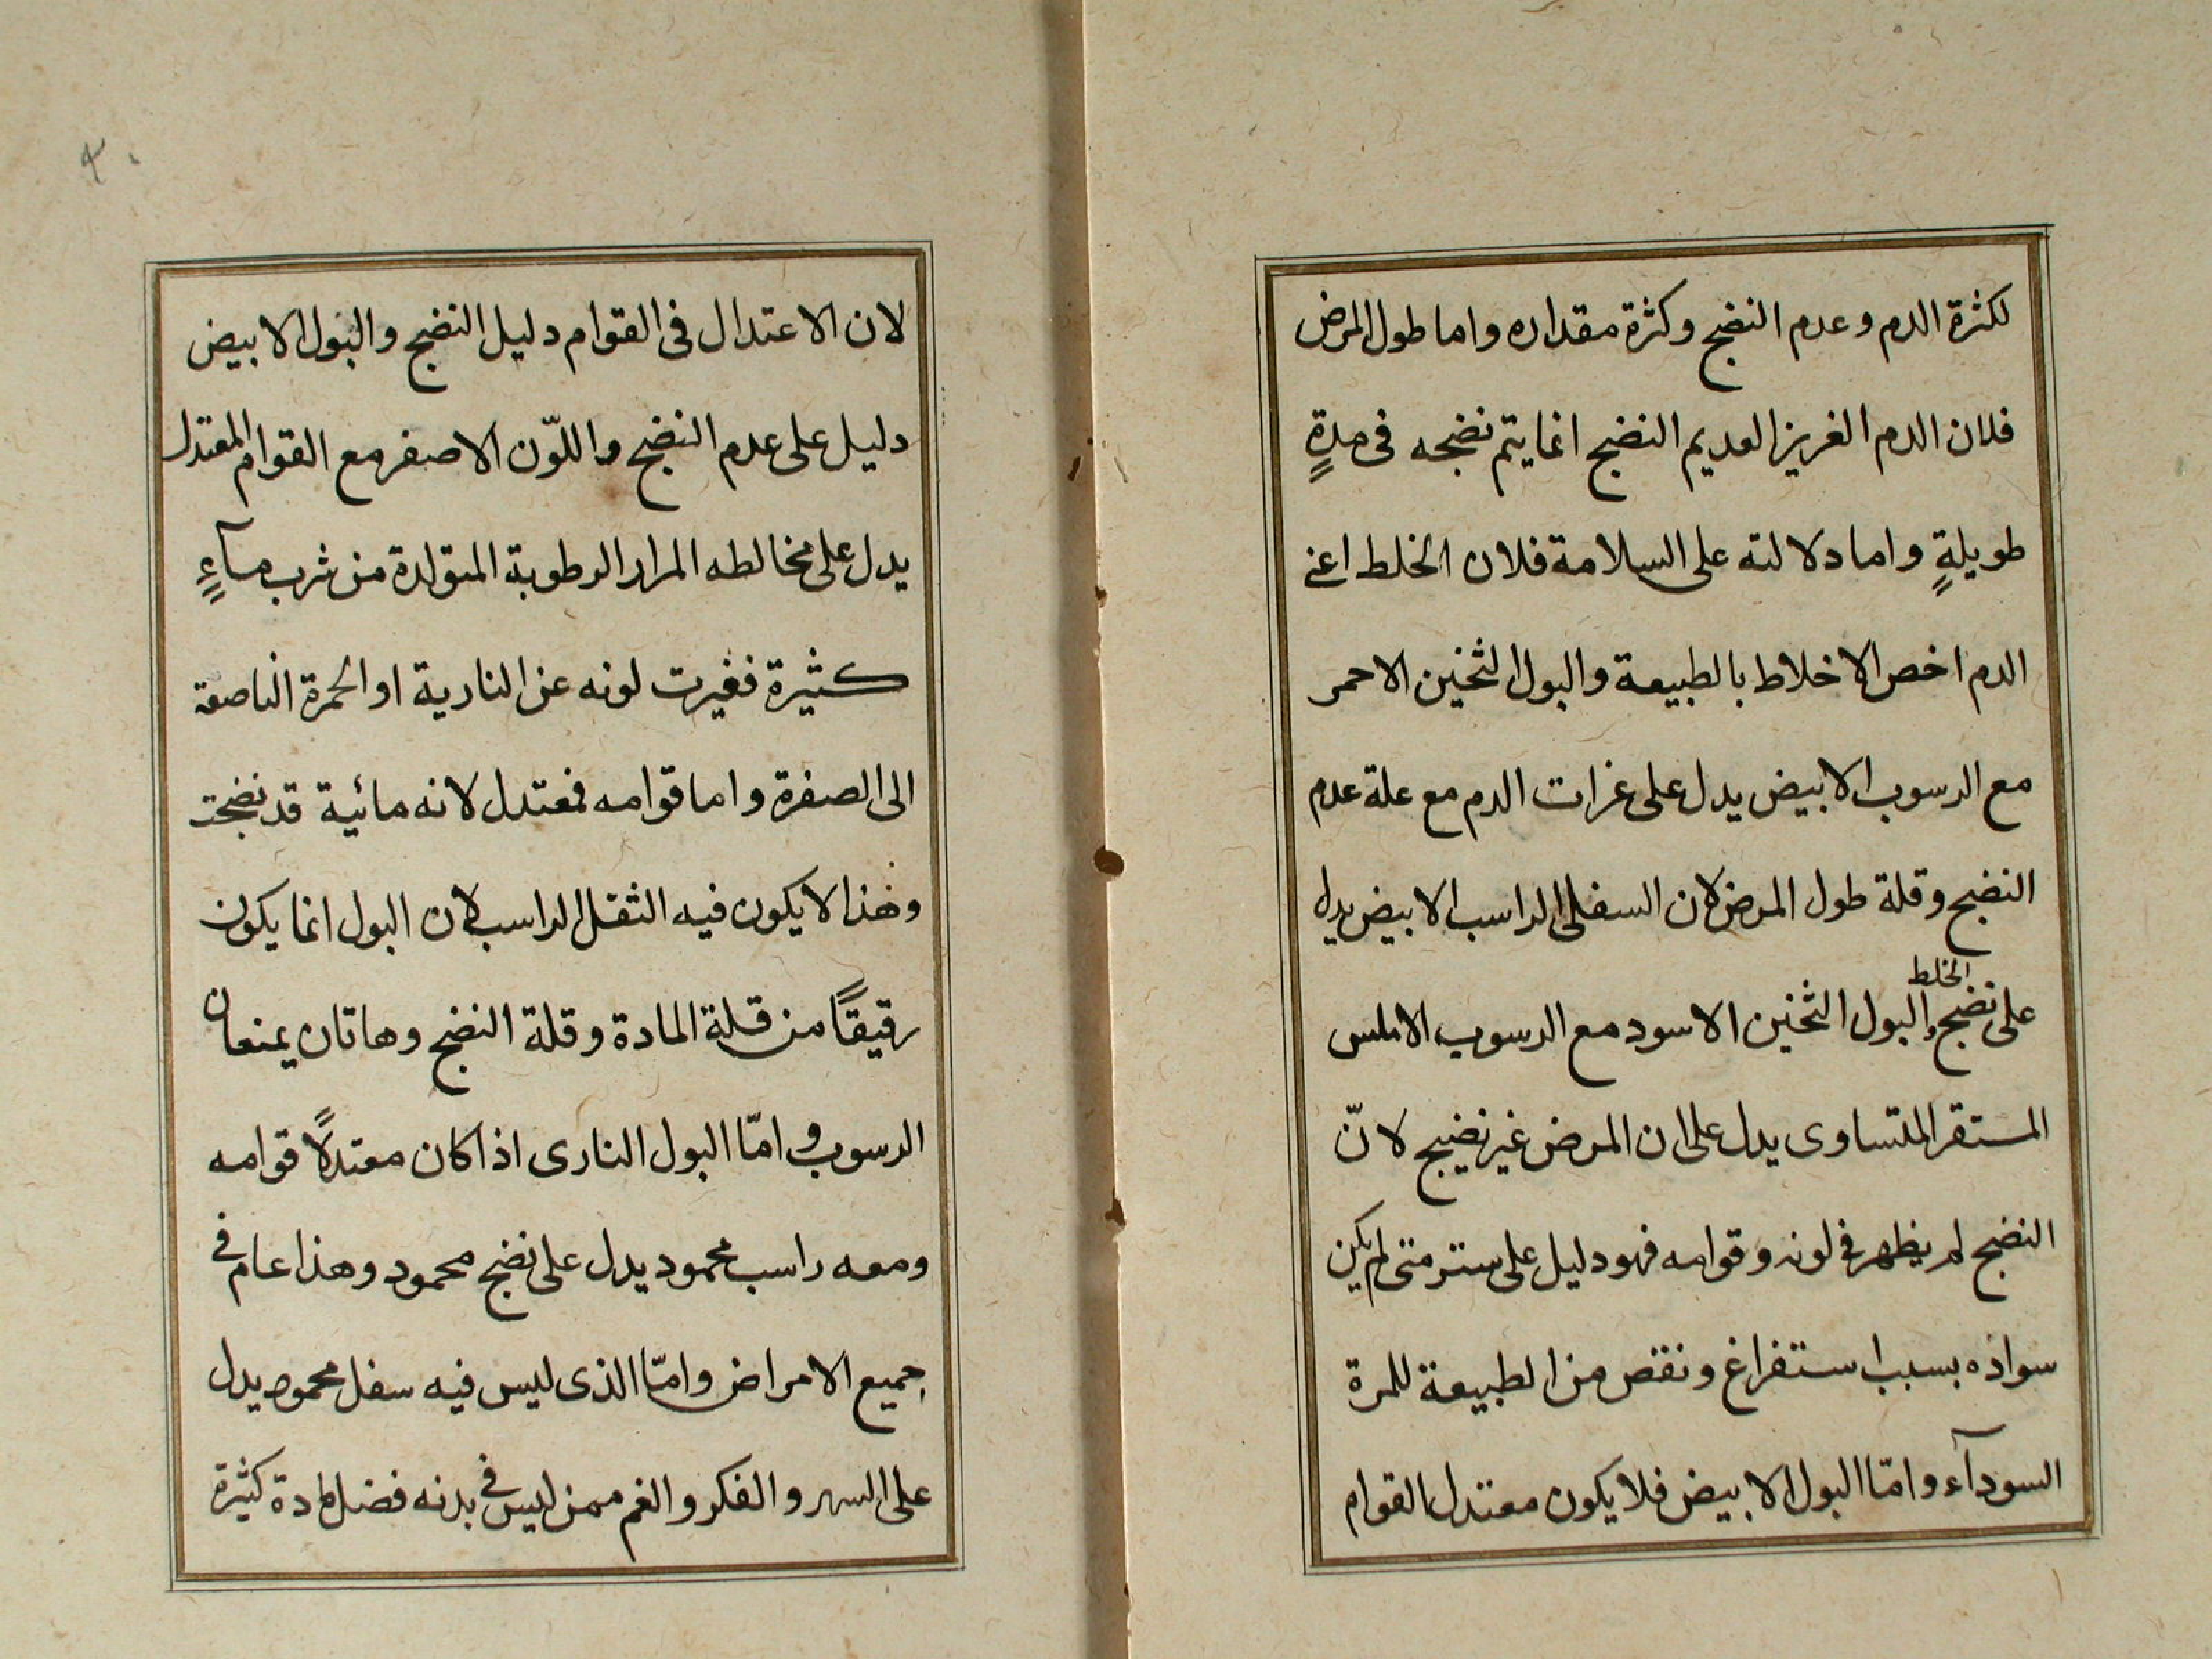 لكثرة الدم وعدم النضج وكثرة مقداره واما طول المرض
فلان الدم الغريز العديم النضج انما يتم نضجه فى مدةٍ
طويلةٍ واما دلالته على السلامة فلان الخلط اعنى
الدم اخص الاخلاط بالطبيعة والبول الثخين الاحمر
مع الرسوب الابيض يدل على غزات الدم مع علة عدم
النضج وقلة طول المرض لان السفل الراسب الابيض يدل
على نضج الخلط والبول الثخين الاسود مع الرسوب الاملس
المستقر المتساوى يدل على ان المرض غير نضيج لانّ
النضج لم يظهر فى لونه وقوامه فهو دليل على ستر متى لم يكن
سواده بسبب استفراغ ونقص من الطبيعة للمرة
السودآء وامّا البول الابيض فلا يكون معتدل القوام
٣٠
لان الاعتدال فى القوام دليل النضج والبول الابيض
دليل على عدم النضج واللوّن الاصفر مع القوام المعتدل
يدل على مخالطه المرار الرطوبة المتولدة من شرب مآءٍ
كثيرة فغيرت لونه عن النارية او الحمرة الناصعة
الى الصفرة واما قوامه فمعتدل لانه مائية قد نضجت
وهذا لا يكون فيه الثقل الراسب لان البول انما يكون
رقيقًا من قلة المادة وقلة النضج وهاتان يمنعان
الرسوب وامّا البول النارى اذا كان معتدلًا قوامه
ومعه راسب محمود يدل على نضج محمود وهذا عام فى
جميع الامراض وامّا الذى ليس فيه سفل محمود يدل
على السهر والفكر والغم ممن ليس فى بدنه فضل مادة كثيرة